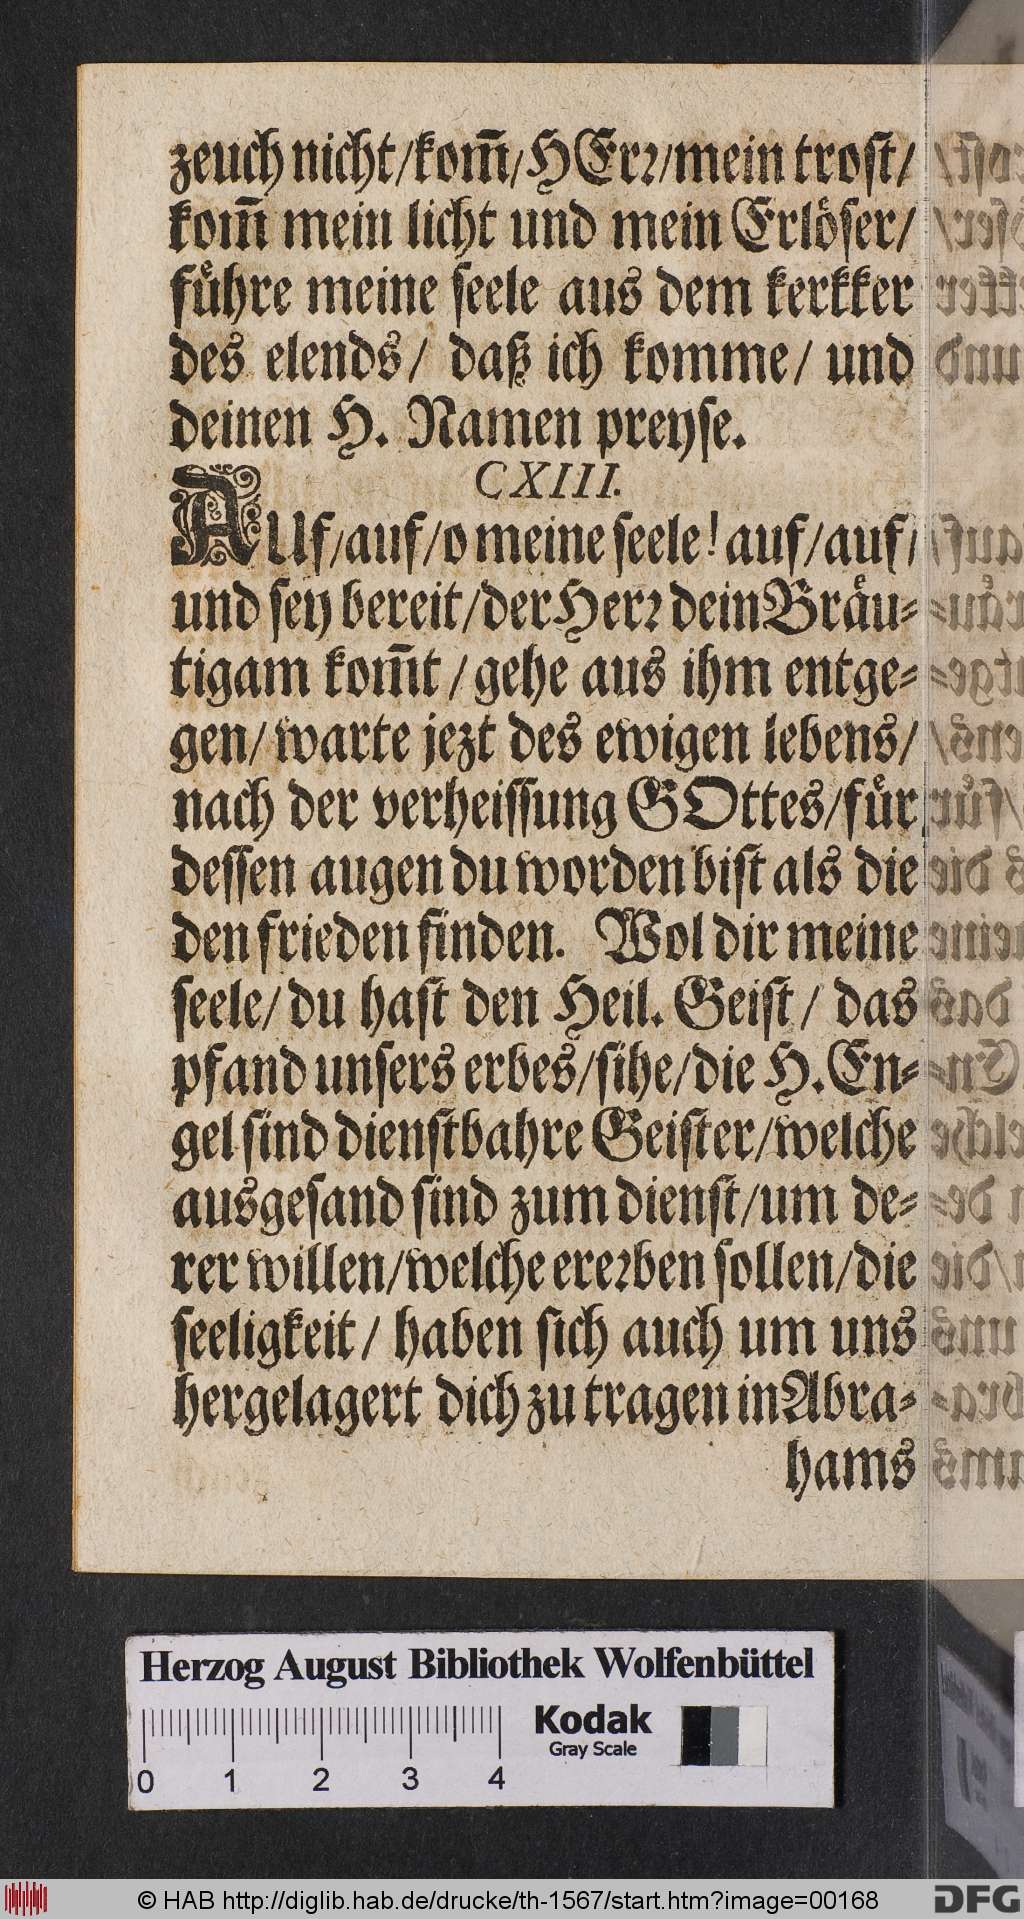 zeuch nicht/kom̃/HErꝛ/mein trost/
kom̃ mein licht und mein Erlöser/
führe meine seele aus dem kerkker
des elends/ daß ich komme/ und
deinen H. Namen preyse.
CXIII.
AUf/auf/o meine seele! auf/auf/
und sey bereit/der Herꝛ dein Bräu-
tigam kom̃t/gehe aus ihm entge-
gen/warte jezt des ewigen lebens/
nach der verheissung GOttes/für
dessen augen du worden bist als die
den frieden finden. Wol dir meine
seele/ du hast den Heil. Geist/ das
pfand unsers erbes/sihe/die H. En-
gel sind dienstbahre Geister/welche
ausgesand sind zum dienst/um de-
rer willen/welche ererꝛben sollen/die
seeligkeit/ haben sich auch um uns
hergelagert dich zu tragen in Abra-
hams
Herzog August Bibliothek Wolfenbüttel
Kodak
Gray Scale
0 1 2 3 4
© HAB http://diglib.hab.de/drucke/th-1567/start.htm?image=00168
DFG